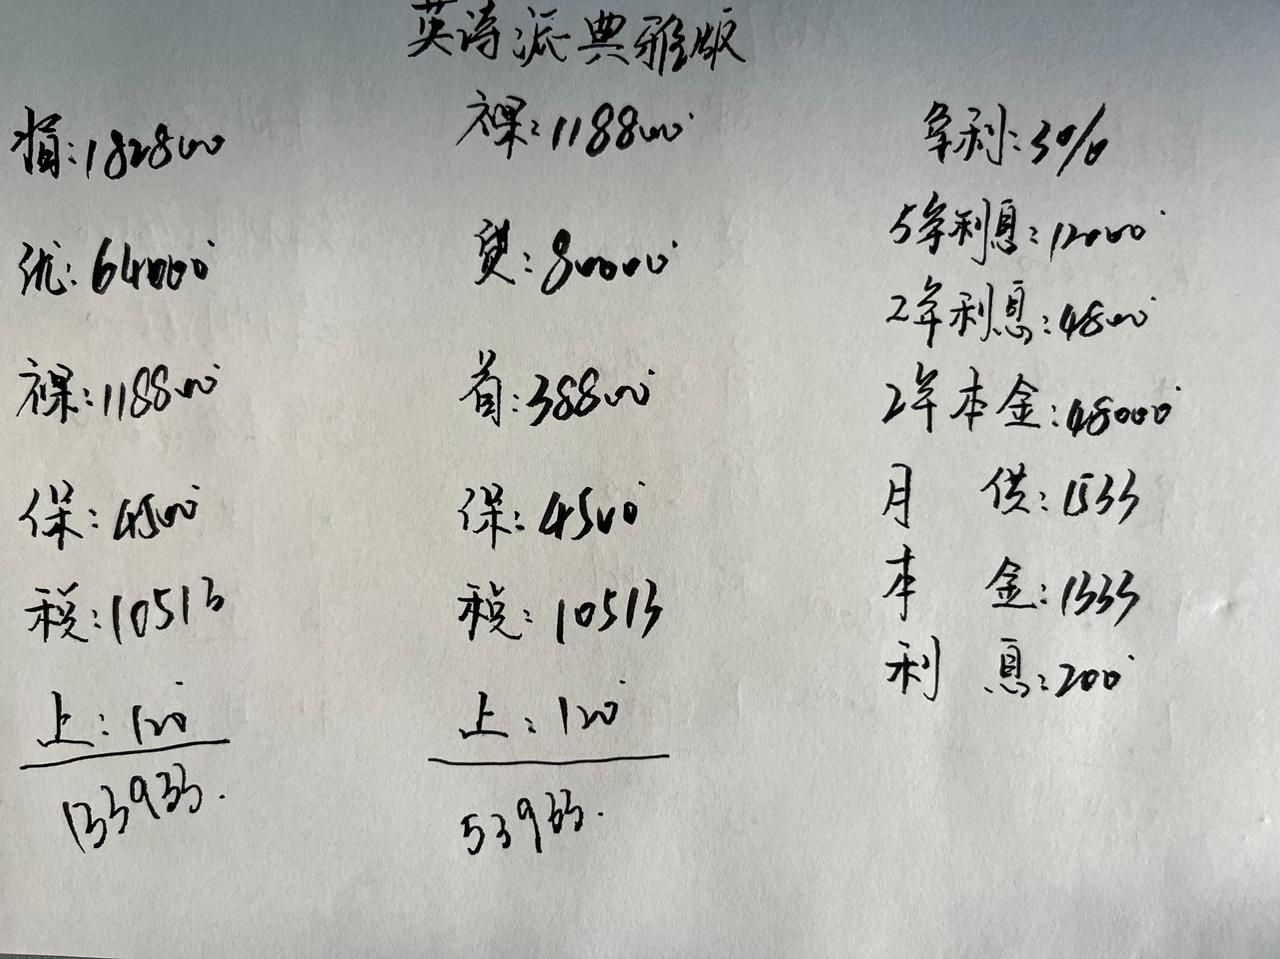 英诗派典雅版
指:182800
优:64000
裸:118800
保:4500
税:10513
上:120
133933.
裸:118800
贷:80000
首:38800
保:4500
税:10513
上:120
53933.
年利:3%
5年利息:12000
2年利息:4800
2年本金:48000
月 供:1533
本 金:1333
利 息:200